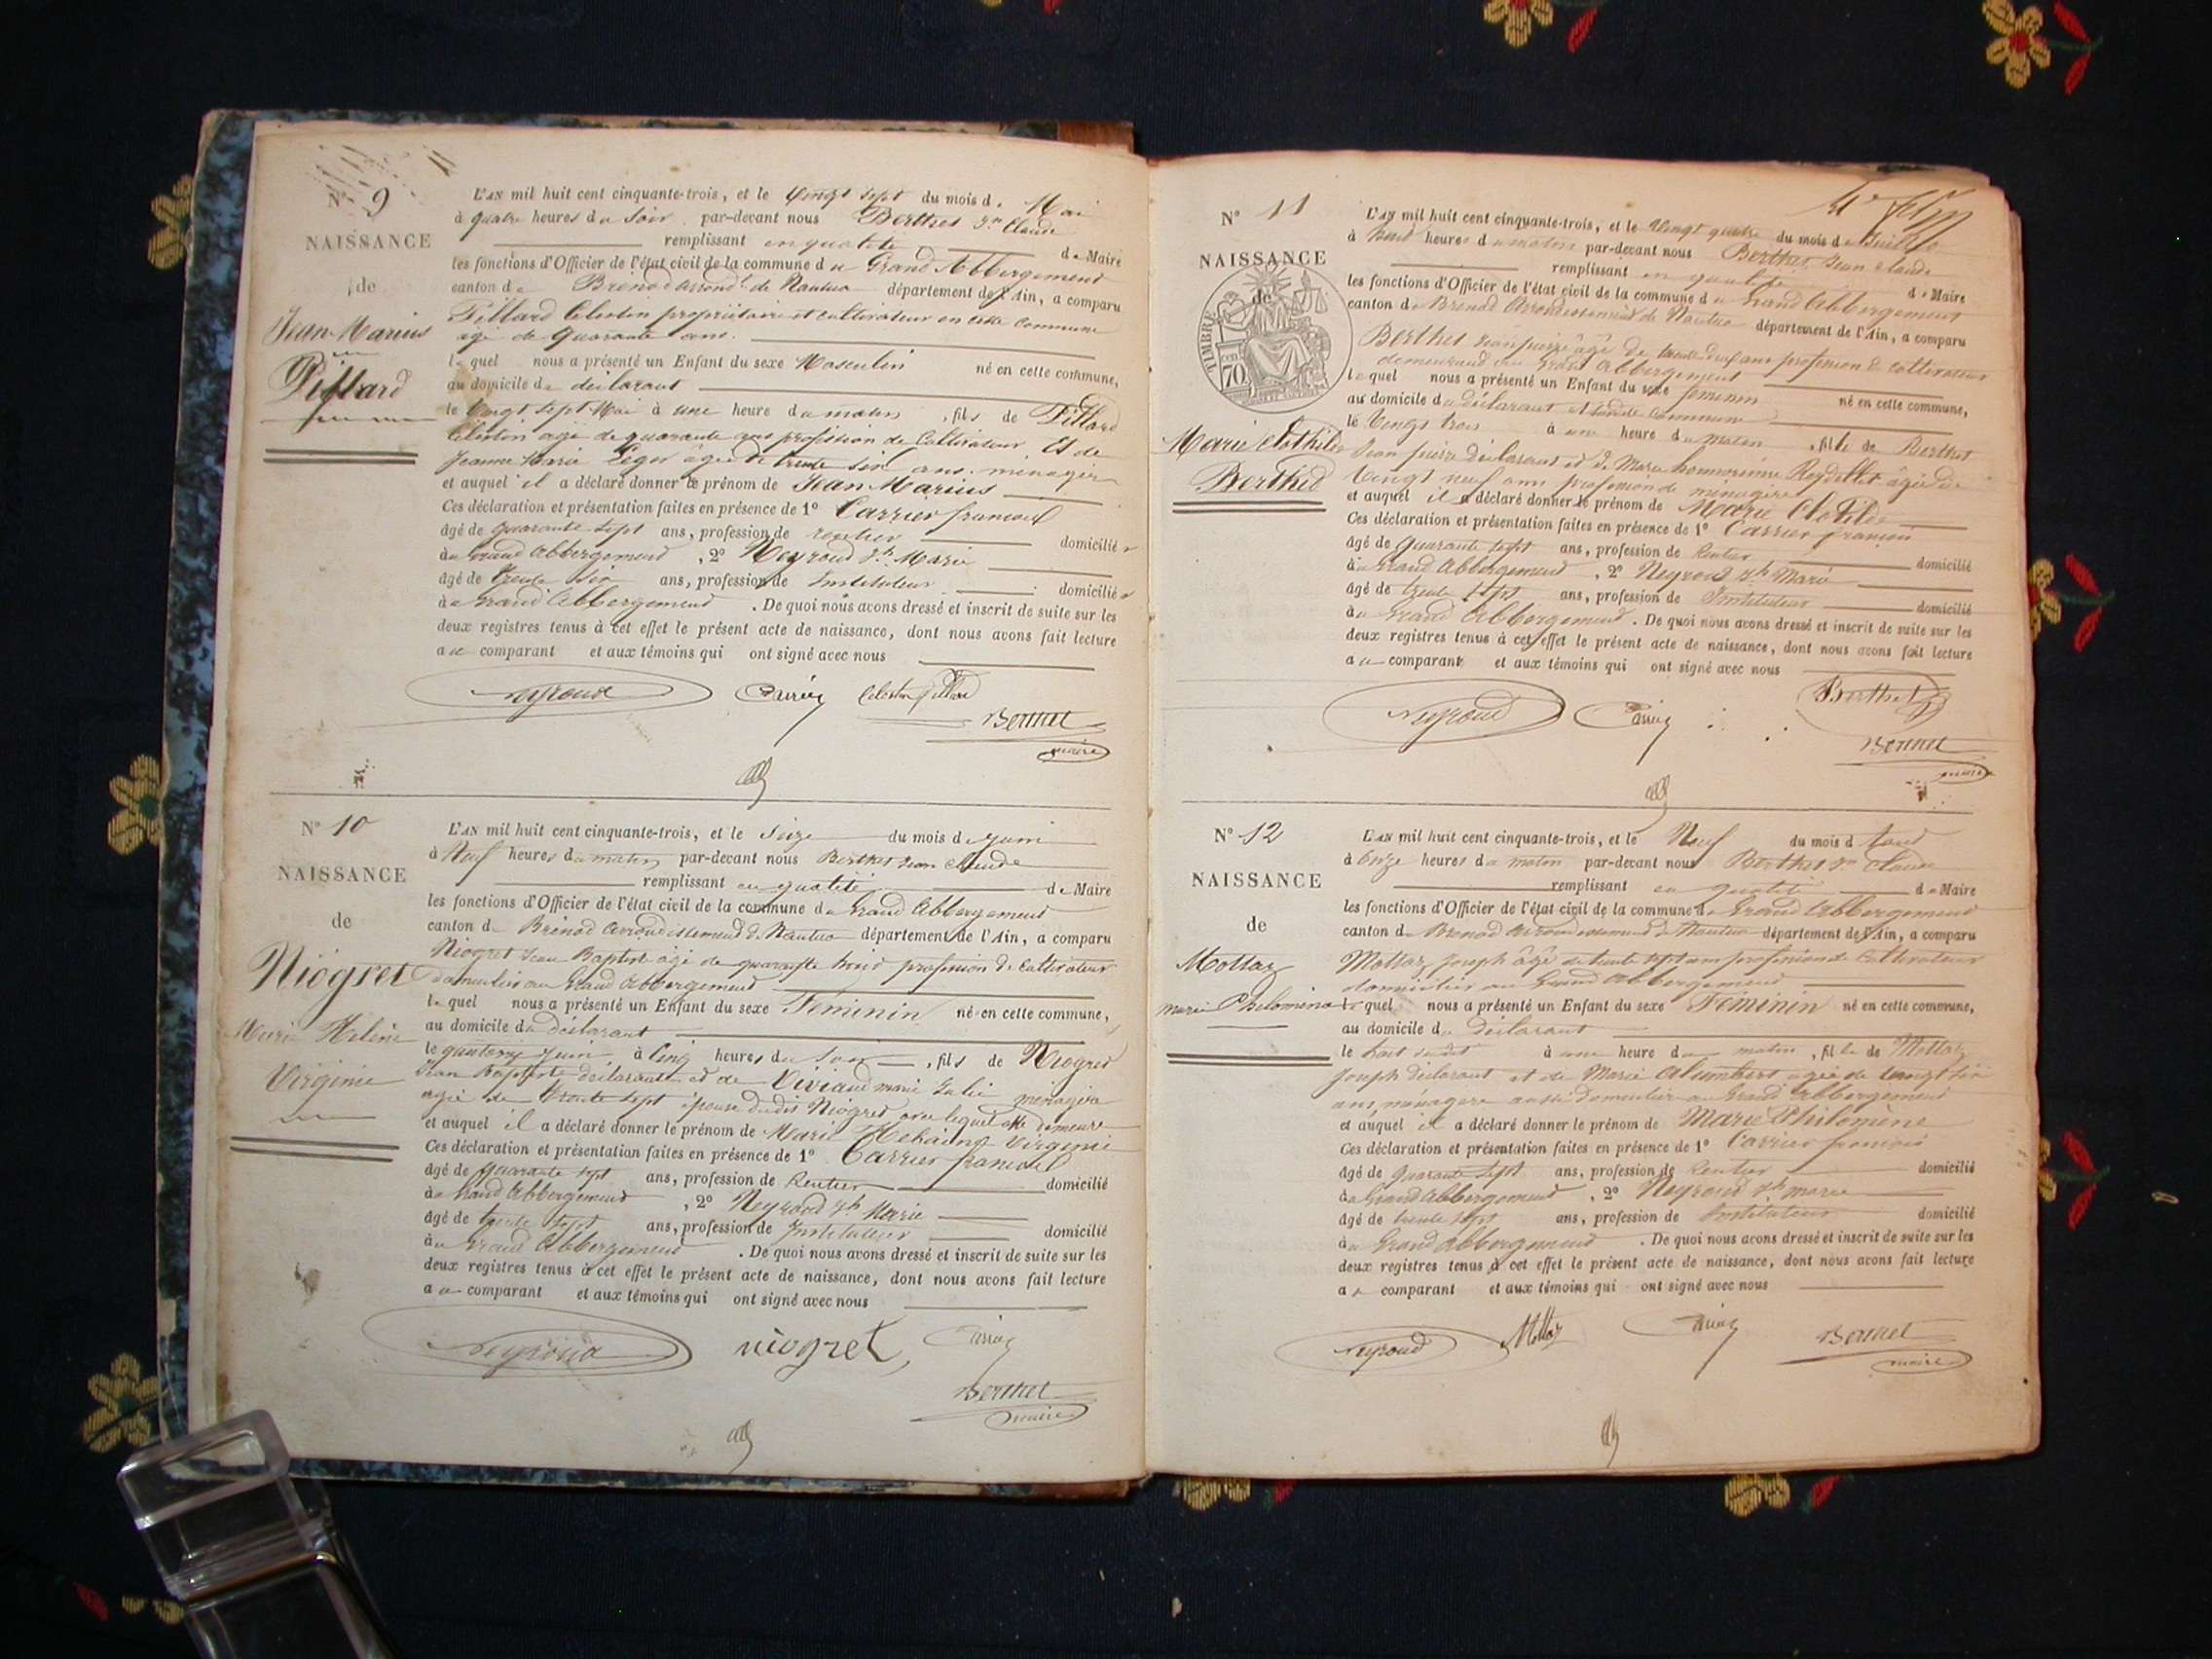 N° 9
NAISSANCE
de
Jean Marius
Pillard
L'AN mil huit cent cinquante-trois, et le Vingt sept du mois de Mai
à quatre heures du Soir par-devant nous Berthet Jn Claude
remplissant en qualité de Maire
les fonctions d'Officier de l'état civil de la commune du Grand Abbergement
canton de Brenod arrondt de Nantua département de l'Ain, a comparu
Pillard Célestin propriétaire et cultivateur en cette commune
âgé de quarante ans.
lequel nous a présenté un Enfant du sexe Masculin né en cette commune,
au domicile du déclarant
le Vingt sept Mai à une heure du matin, fils de Pillard
Célestin âgé de quarante ans profession de Cultivateur Et de
Jeanne Marie Léger âgée de trente six ans. ménagère
et auquel il a déclaré donner le prénom de Jean Marius
Ces déclaration et présentation faites en présence de 1° Carrier françois
âgé de quarante sept ans, profession de rentier domicilié
au Grand Abbergement, 2° Neyroud Jh Marie
âgé de trente six ans, profession de Instituteur domicilié
au Grand Abbergement. De quoi nous avons dressé et inscrit de suite sur les
deux registres tenus à cet effet le présent acte de naissance, dont nous avons fait lecture
au comparant et aux témoins qui ont signé avec nous
Neyroud Carrier Celestin pillard
Berthet
maire
N° 10
NAISSANCE
de
Niogret
Marie Helène
Virginie
L'AN mil huit cent cinquante-trois, et le Seize du mois de Juin
à Neuf heures du matin par-devant nous Berthet Jean Claude
remplissant en qualité de Maire
les fonctions d'Officier de l'état civil de la commune du Grand Abbergement
canton de Brénod arrondissement de Nantua département de l'Ain, a comparu
Niogret Jean Baptiste âgé de quarante trois profession de Cultivateur
domicilier au Grand Abbergement
lequel nous a présenté un Enfant du sexe Féminin né en cette commune,
au domicile du déclarant
le quatorze Juin à Cinq heures du Soir, fils de Niogret
Jean Baptiste déclarant et de Viviand marie Julie ménagère
agée de trente sept épouse dudit Niogret avec lequel elle demeure
et auquel il a déclaré donner le prénom de Marie Helène Virginie
Ces déclaration et présentation faites en présence de 1° Carrier françois
âgé de quarante sept ans, profession de Rentier domicilié
au Grand Abbergement, 2° Neyroud Jh Marie
âgé de trente sept ans, profession de Instituteur domicilié
au Grand Abbergement. De quoi nous avons dressé et inscrit de suite sur les
deux registres tenus à cet effet le présent acte de naissance, dont nous avons fait lecture
au comparant et aux témoins qui ont signé avec nous
Neyroud niogret Carrier
Berthet
maire
N° 11
NAISSANCE
de
TIMBRE
70
Marie Clothilde
Berthet
L'AN mil huit cent cinquante-trois, et le Vingt quatre du mois de Juillet
à heures du matin par-devant nous Berthet Jean Claude
remplissant en qualité de Maire
les fonctions d'Officier de l'état civil de la commune du Grand Abbergement
canton de Brenod Arrondissement de Nantua département de l'Ain, a comparu
Berthet Jean pierre âgé de trente ans profession de Cultivateur
demeurant au Grand Abbergement
lequel nous a présenté un Enfant du sexe féminin né en cette commune,
au domicile du déclarant commune
le Vingt trois à une heure du matin, fille de Berthet
Jean pierre déclarant et de Marie Reydellet âgée de
Vingt neuf ans profession de ménagère
et auquel il a déclaré donner le prénom de Marie Clotilde
Ces déclaration et présentation faites en présence de 1° Carrier françois
âgé de quarante sept ans, profession de Rentier domicilié
au Grand Abbergement, 2° Neyroud Jh Marie
âgé de trente sept ans, profession de Instituteur domicilié
au Grand Abbergement. De quoi nous avons dressé et inscrit de suite sur les
deux registres tenus à cet effet le présent acte de naissance, dont nous avons fait lecture
au comparant et aux témoins qui ont signé avec nous
Neyroud Carrier Berthet
Berthet
maire
N° 12
NAISSANCE
de
Mottaz
marie Philomène
L'AN mil huit cent cinquante-trois, et le Neuf du mois d'Aout
à Onze heures du matin par-devant nous Berthet Jn Claude
remplissant en qualité de Maire
les fonctions d'Officier de l'état civil de la commune du Grand Abbergement
canton de Brenod Arrondissement de Nantua département de l'Ain, a comparu
Mottaz Joseph âgé de trente sept ans profession de Cultivateur
domicilier au Grand Abbergement
lequel nous a présenté un Enfant du sexe Féminin né en cette commune,
au domicile du déclarant
le huit à une heure du matin, fille de Mottaz
Joseph déclarant et de Marie Alumbert agée de Vingt six
ans, ménagère aussi domicilier au Grand Abbergement
et auquel il a déclaré donner le prénom de Marie Philomène
Ces déclaration et présentation faites en présence de 1° Carrier françois
âgé de quarante sept ans, profession de Rentier domicilié
au Grand Abbergement, 2° Neyroud Jh marie
âgé de trente sept ans, profession de Instituteur domicilié
au Grand Abbergement. De quoi nous avons dressé et inscrit de suite sur les
deux registres tenus à cet effet le présent acte de naissance, dont nous avons fait lecture
au comparant et aux témoins qui ont signé avec nous
Neyroud Mottaz Carrier Berthet
maire